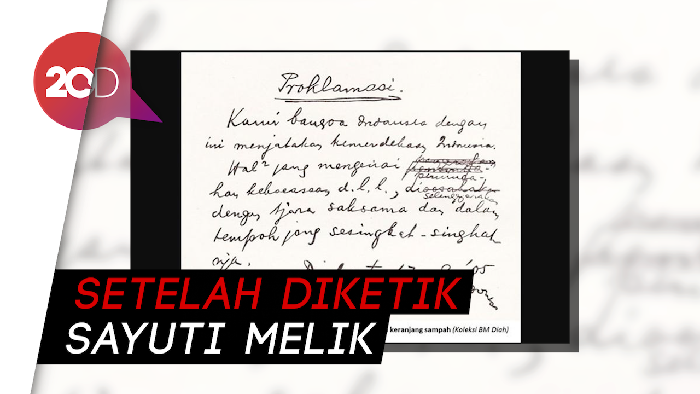 20D
Proklamasi.
Kami bangsa Indonesia dengan
ini menjatakan kemerdekaan Indonesia.
Hal² jang mengenai
peminda-
han kekoeasaan d.l.l., dioesahakan
selenggarakan
dengan tjara saksama dan dalam
tempoh jang sesingkat-singkat
nja.
05
SETELAH DIKETIK
SAYUTI MELIK
keranjang sampah (Koleksi BM Diah)